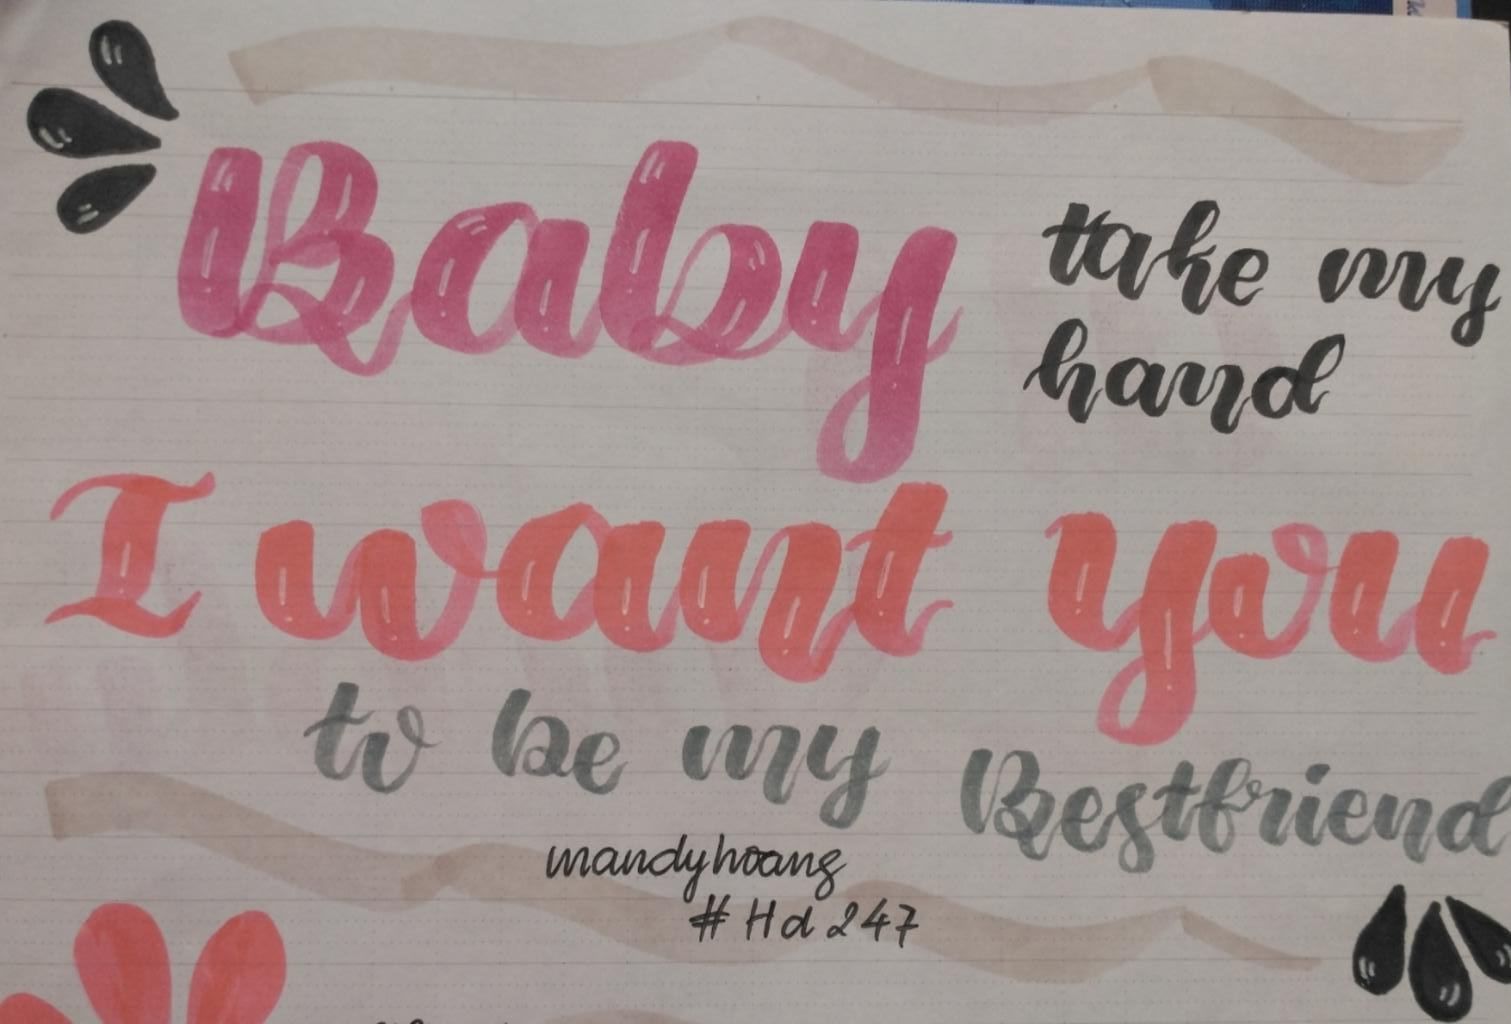 Baby take my
hand
I want you
to be my Bestfriend
mandyhoang
#Hd247